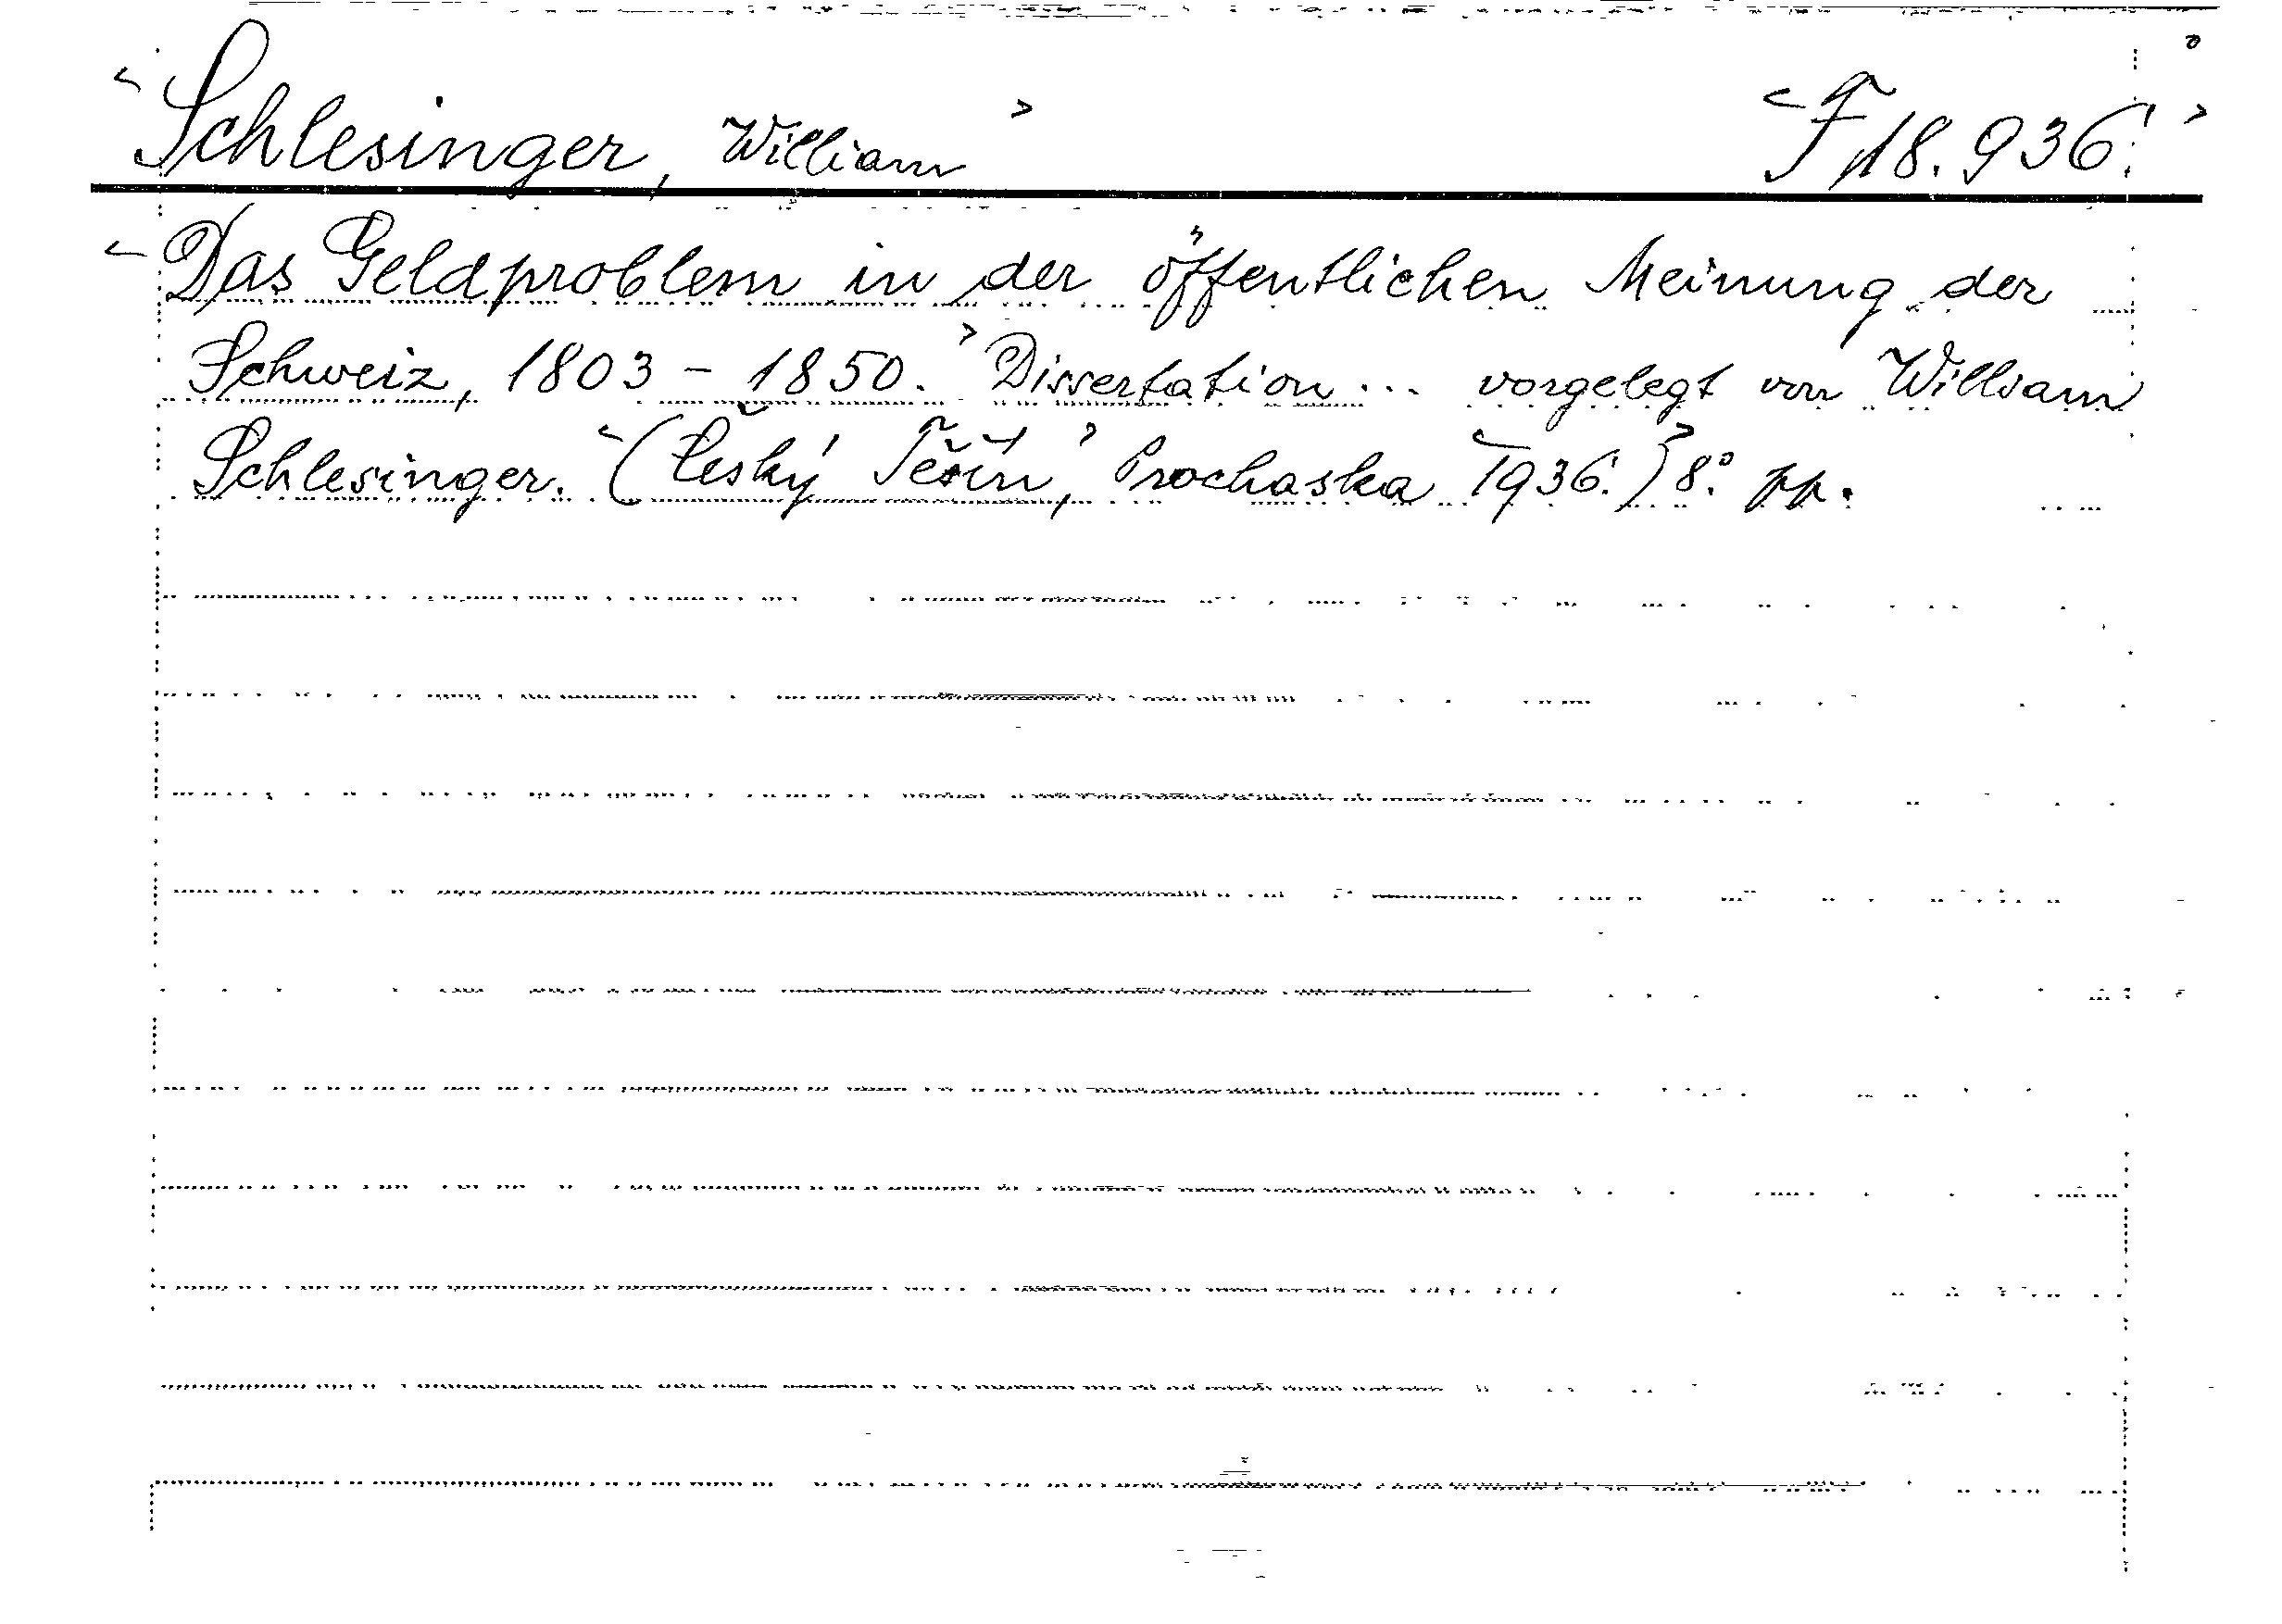 Schlesinger, William F 18.936.
Das Geldproblem in der öffentlichen Meinung der
Schweiz, 1803 - 1850. Dissertation ... vorgelegt von William
Schlesinger. (Český Těšín, Prochaska 1936.) 8° pp.